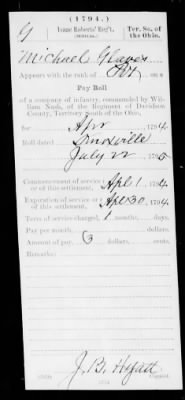 (1794.)
G
Isaac Roberts' Reg't
Ter. So. of
the Ohio.
Michael Glaves
Appears with the rank of Pvt on a
Pay Roll
of a company of infantry, commanded by Wil-
liam Nash, of the Regiment of Davidson
County, Territory South of the Ohio,
for Apr 1794.
Roll dated Knoxville
July 22 1795
Commencement of service or of this settlement, Apl 1 1794
Expiration of service or of this settlement, Apl 30 1794
Term of service charged, 1 months, days.
Pay per month, dollars.
Amount of pay, 3 dollars, cents.
Remarks:
J. B. Hyatt
Copyist.